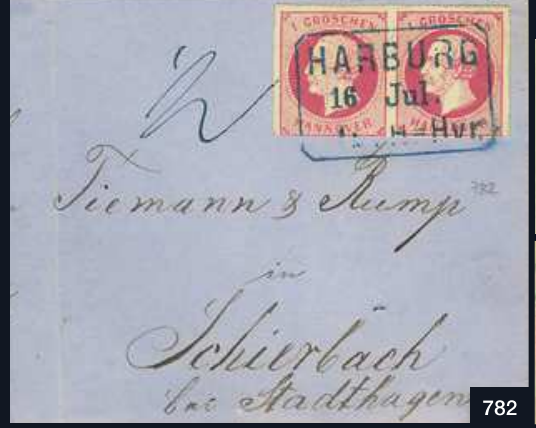 1 GROSCHEN 1 GROSCHEN
HARBURG
16 Jul.
HANNOVER HANNOVER
H-Hvr.
Tiemann & Rump
782
in
Schierbach
bei Stadthagen
782